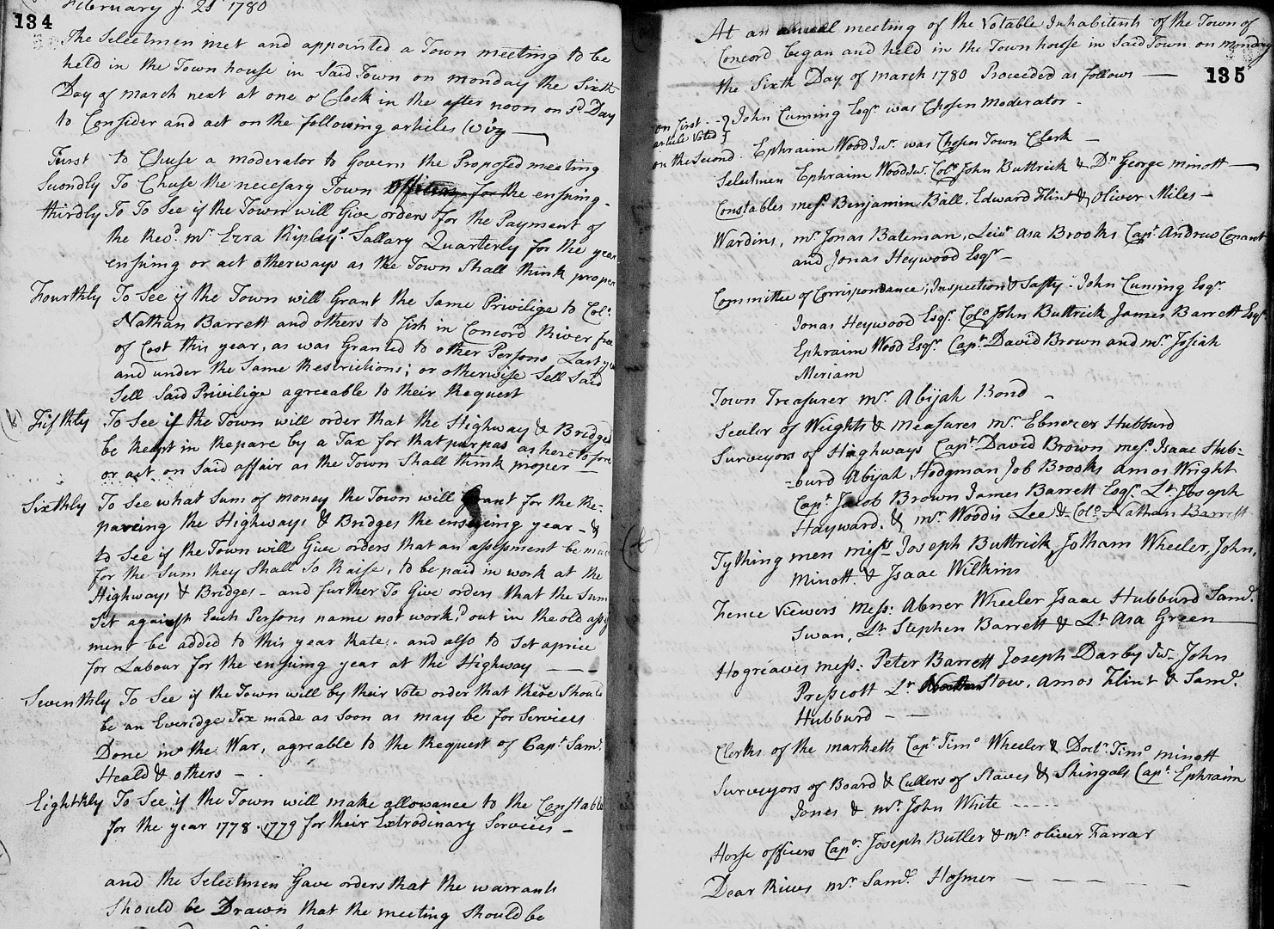 134
February ye 21 1780
The Selectmen met and appointed a Town meeting to be
held in the Town house in Said Town on monday the Sixth
Day of march next at one o Clock in the after noon on sd Day
to Consider and act on the following articles (viz)
First to Chuse a moderator to govern the Proposed meeting
Secondly To Chuse the necesary Town officers for the ensuing
thirdly To To See if the Town will Give orders for the Payment of
the Revd mr Ezra Ripleys Sallary Quarterly for the year
ensuing or act otherways as the Town Shall think proper
Fourthly To See if the Town will Grant the Same Privilige to Colo
Nathan Barrett and others to fish in Concord River free
of Cost this year, as was Granted to other Persons Last year
and under the Same Restrictions; or otherwise Sell Said
Sell Said Privilige agreeable to their Request
Fifthly To See if the Town will order that the Highways & Bridges
be kept in Repare by a Tax for that purpas as heretofore
or act on Said affair as the Town Shall think proper
Sixthly To See what Sum of money the Town will Grant for the Re-
pareing the Highways & Bridges the ensuing year - &
to See if the Town will Give orders that an assessment be made
for the Sum they Shall So Raise, to be paid in work at the
Highways & Bridges - and further To Give orders that the Sum
Set against Each Persons name not workd out in the old assess
ment be added to this year Rate: and also to Set a price
for Labour for the ensuing year at the Highway
Seventhly To See if the Town will by their Vote order that there Should
be an Everidge Tax made as Soon as may be for Services
Done in the War, agreable to the Request of Capt Saml
Heald & others -
Eighthly To See if the Town will make allowance to the Constables
for the year 1778 - 1779 for their Extrodinary Services -
and the Selectmen Gave orders that the warrants
Should be Drawn that the meeting Should be
135
At an annual meeting of the Votable Inhabitents of the Town of
Concord began and held in the Town house in Said Town on monday
the Sixth Day of march 1780 Proceeded as follows
on First article Voted } John Cuming Esqr was Chosen moderator -
on the Second. Ephraim Wood Junr. was Chosen Town Clerk
Selectmen Ephraim Wood Junr. Colo John Buttrick & Dn George minott
Constables mess Benjamin Ball, Edward Flint & Oliver Miles -
Wardins, mr Jonas Bateman, Leiut Asa Brooks Capt Andrew Conant
and Jonas Heywood Esqr -
Committee of Correspondance, Inspection & Safty: John Cuming Esqr
Jonas Heywood Esqr Colo John Buttrick James Barrett Esqr
Ephraim Wood Esqr Capt David Brown and mr Josiah
Meriam
Town Treasurer mr Abijah Bond -
Sealer of Weights & measures mr Ebnezer Hubburd
Surveyors of Highways Capt David Brown mess Isaac Hub-
-burd Abijah Hodgman Job Brooks Amos Wright
Capt Jacob Brown James Barrett Esqr Lt Joseph
Hayward, & mr Woodis Lee & Colo Nathan Barrett
Tything men mess Joseph Buttrick Jotham Wheeler, John,
Minott & Isaac Wilkins
Fence Viewers Mess: Abner Wheeler Isaac Hubburd Saml
Swan, Lt Stephen Barrett & Lt Asa Green
Hogreaives mess: Peter Barrett Joseph Darby Junr John
Presscott Lt Stow, Amos Flint & Saml
Hubburd - -
Clerks of the marketts Capt Timo Wheeler & Doctr Timo minott
Surveyors of Board & Cullers of Staves & Shingals Capt Ephraim
Jones & mr John White
Horse officers Capt Joseph Butler & mr oliver Farrar
Dear Rives mr Saml Hosmer